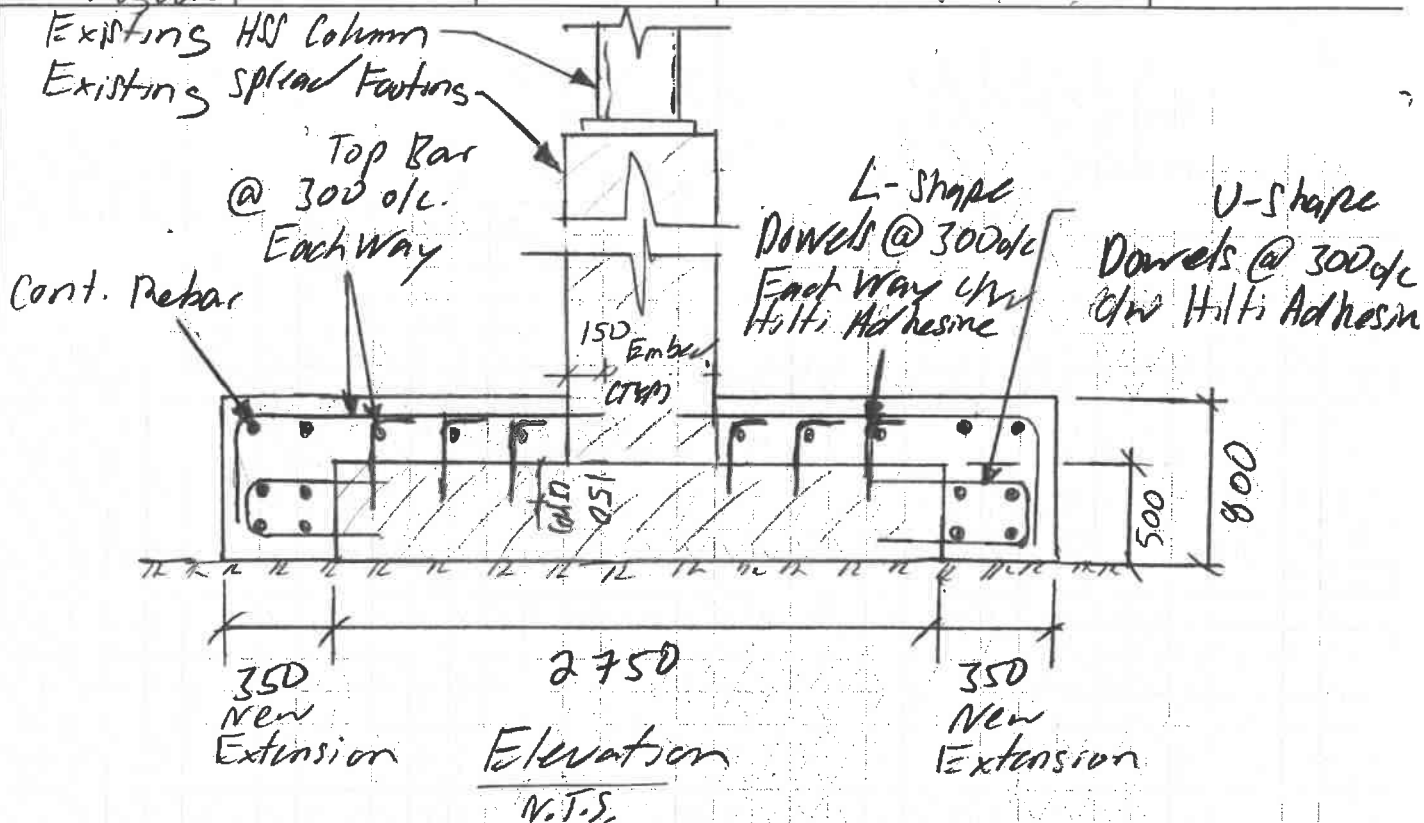 Existing HSS Column
Existing Spread Footing
Top Bar
@ 300 o/c.
Each Way
Cont. Rebar
L-Shape
Dowels @ 300 o/c
Each Way c/w
Hilti Adhesive
U-Shape
Dowels @ 300 o/c
c/w Hilti Adhesive
150
Embed
(TYP)
(TYP)
150
500
800
350
New
Extension
2750
350
New
Extension
Elevation
N.T.S.